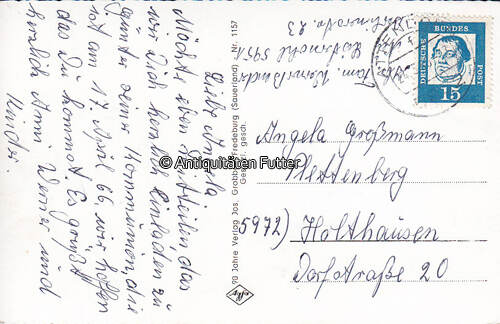 Liebe Angela
Möchte eben mitteilen, das
wir Dich herzlich einladen zu
Günter seine Kommunion, die
ist am 17 April 66 wir hoffen
das Du kommst. Es grüßt
herzlich Anni Werner und
Kinder.
Fam. Werner
5951
No. 23
90 Jahre Verlag Jos. Grobbel, Fredeburg (Sauerland) Nr. 1157
Ges. gesch.
DEUTSCHE BUNDESPOST
15
Angela Großmann
Plettenberg
5972) Holthausen
Dorfstraße 20
© Antiquitäten Futter